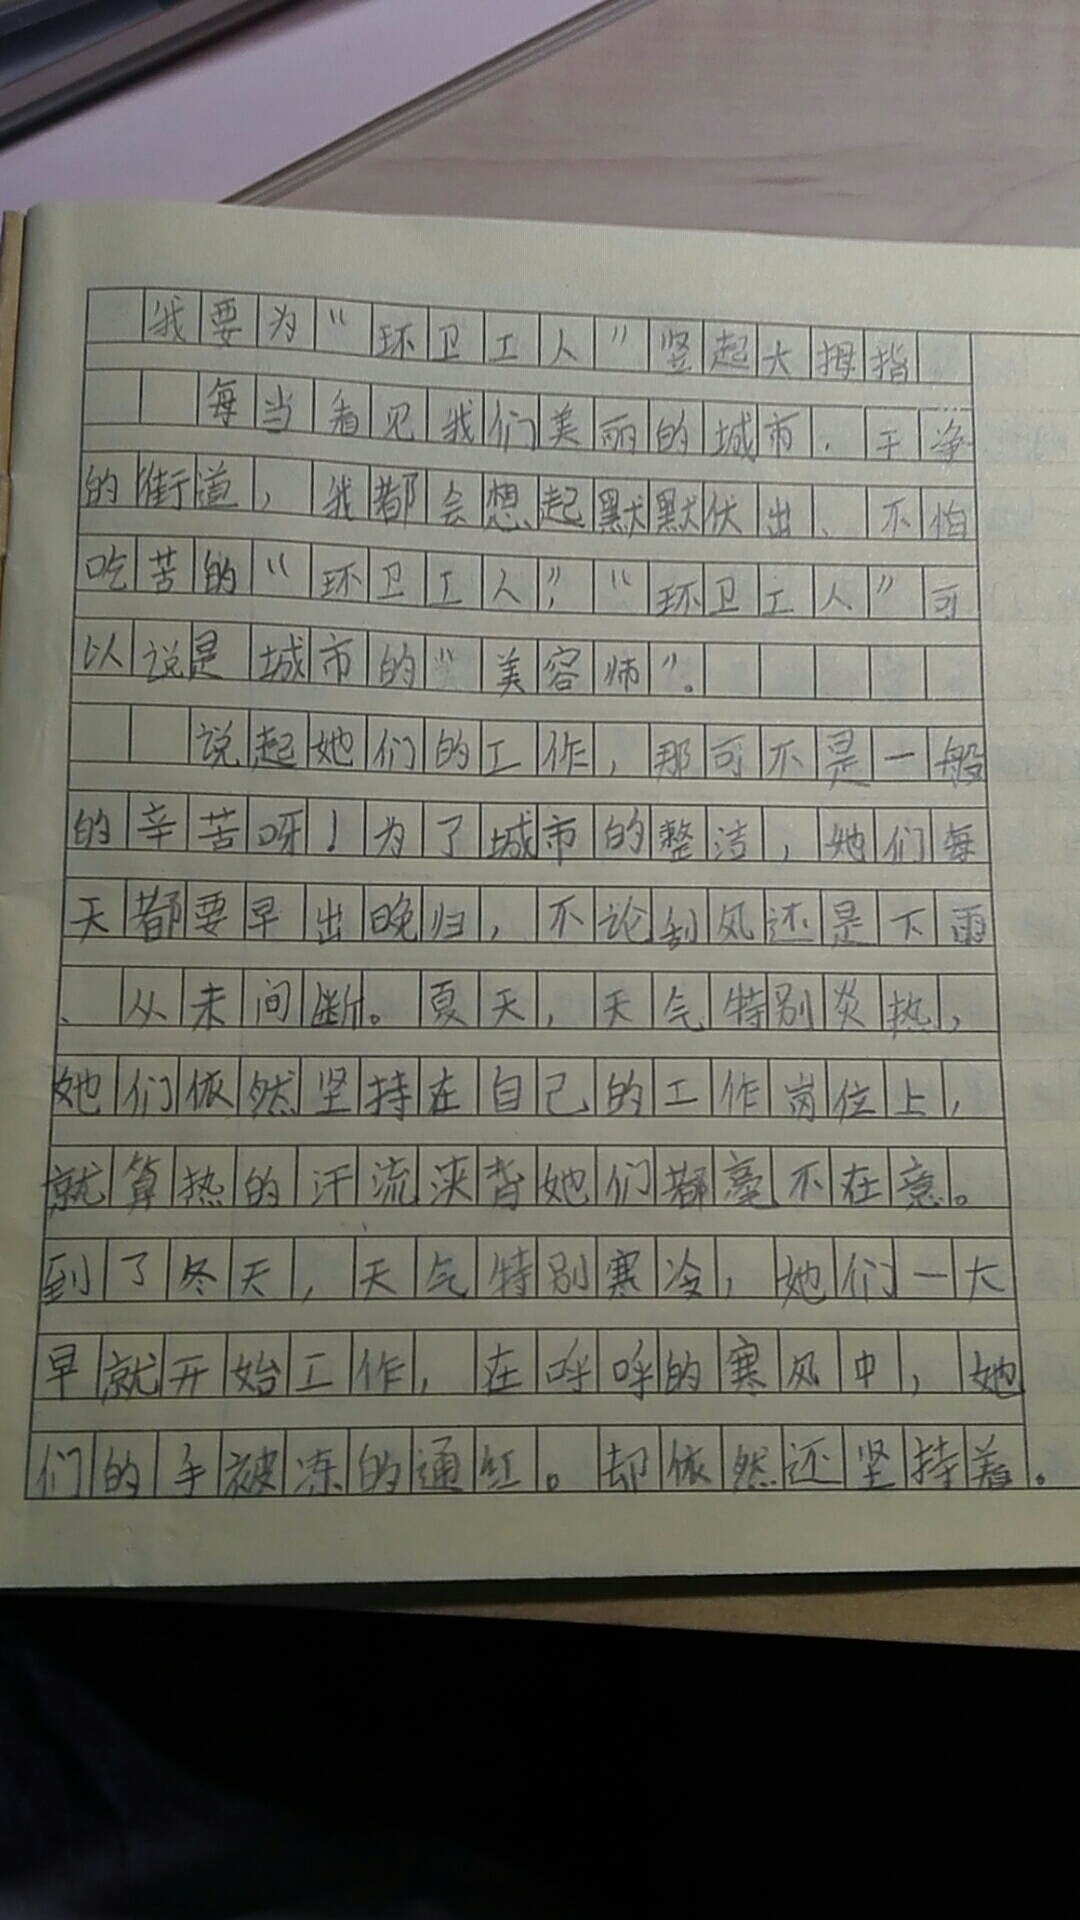 我要为“环卫工人”竖起大拇指
每当看见我们美丽的城市，干净
的街道，我都会想起默默伏出、不怕
吃苦的“环卫工人”，“环卫工人”可
以说是城市的“美容师”。
说起她们的工作，那可不是一般
的辛苦呀！为了城市的整洁，她们每
天都要早出晚归，不论刮风还是下雨
、从未间断。夏天，天气特别炎热，
她们依然坚持在自己的工作岗位上，
就算热的汗流浃背她们都毫不在意。
到了冬天，天气特别寒冷，她们一大
早就开始工作，在呼呼的寒风中，她
们的手被冻的通红。却依然还坚持着。